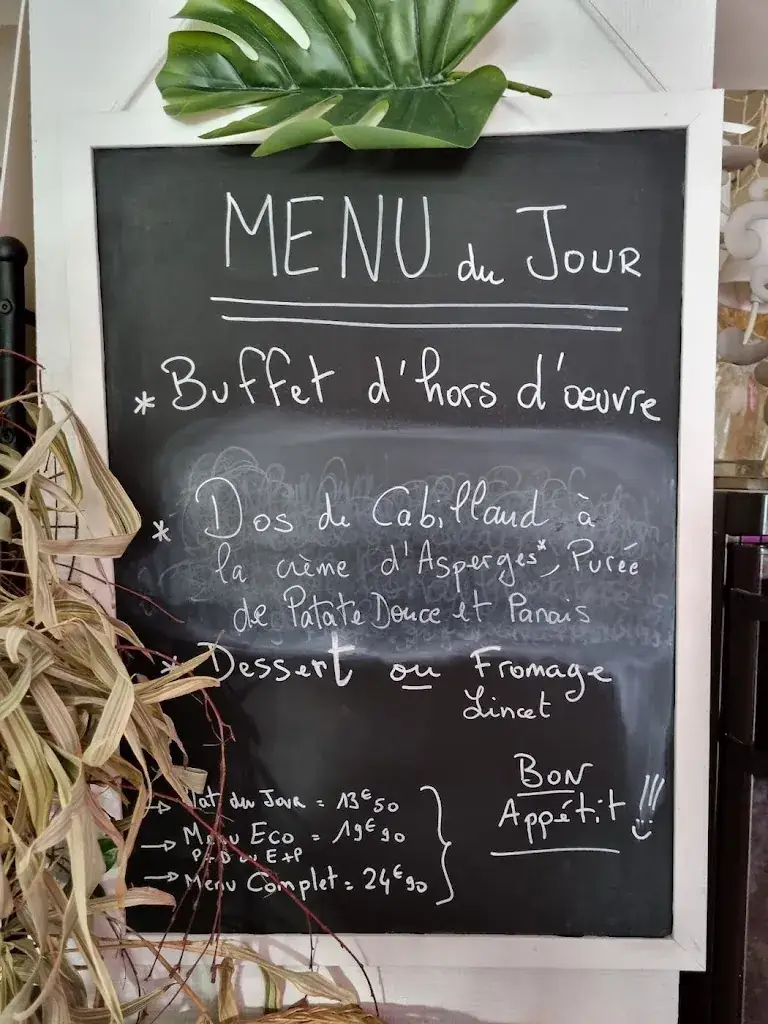 MENU du JOUR
* Buffet d'hors d'œuvre
* Dos de Cabillaud à
la crème d'Asperges*, Purée
de Patate Douce et Panais
* Dessert ou Fromage
Lincet
BON
Appétit !!!
→ Plat du Jour = 13€50
→ Menu Eco = 19€90
P+D ou E+P
→ Menu Complet = 24€90